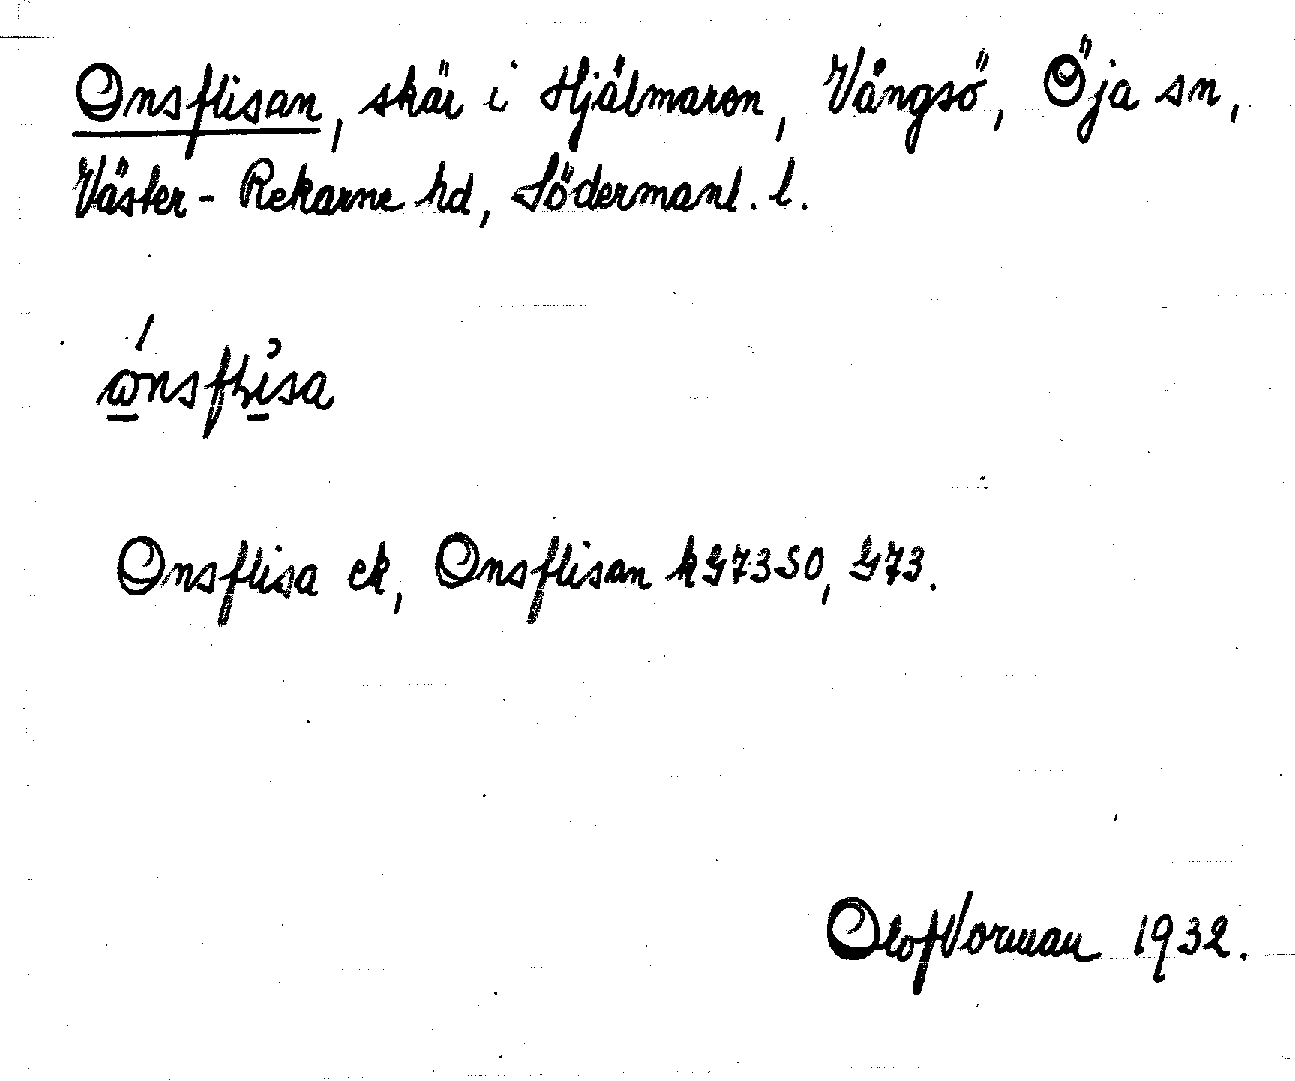 Onsflisan, skär i Hjälmaren, Vångsö, Öja sn,
Väster-Rekarne hd, Södermanl. l.
Onsflisa ek, Onsflisan kG7350, G73.
Olof Vorman 1932.